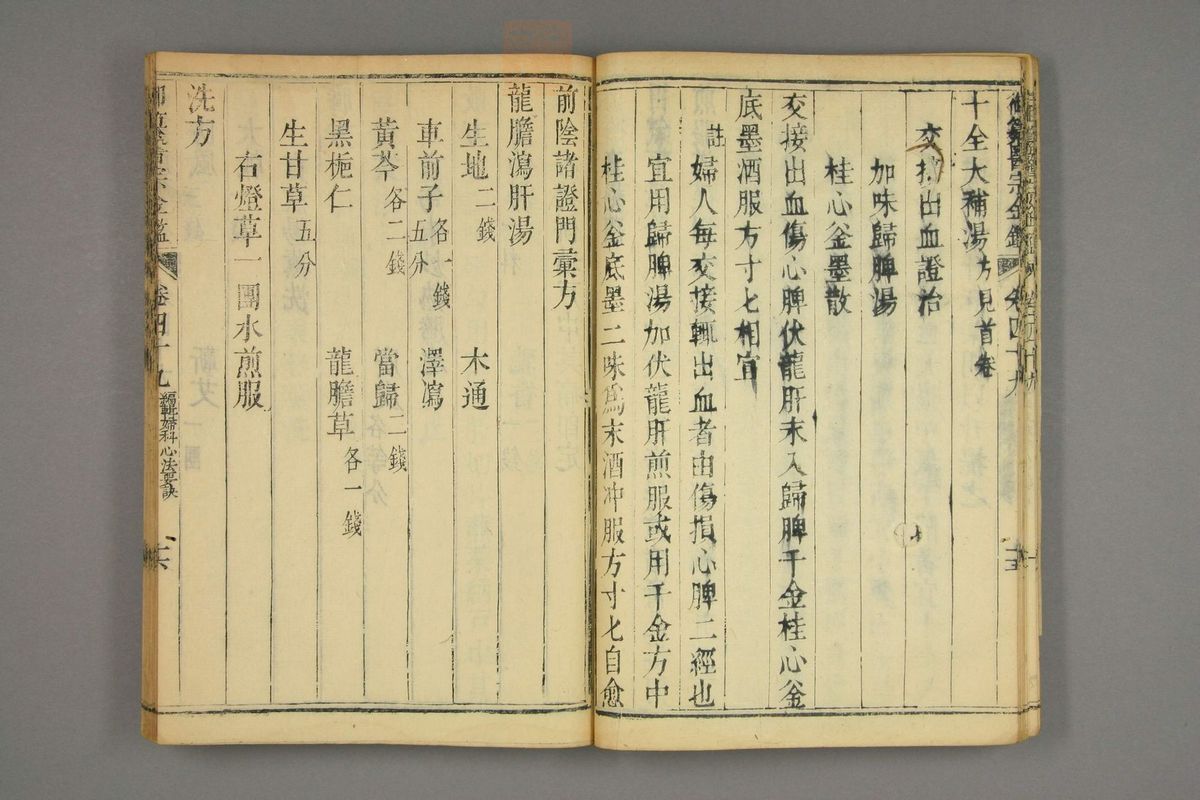 御纂醫宗金鑑 卷四十九
十全大補湯方見首卷
交接出血證治
加味歸脾湯
桂心釜墨散
交接出血傷心脾伏龍肝末入歸脾千金桂心釜
底墨酒服方寸匕相宜
註婦人每交接輒出血者由傷損心脾二經也
宜用歸脾湯加伏龍肝煎服或用千金方中
桂心釜底墨二味為末酒冲服方寸匕自愈
前陰諸證門彙方
龍膽瀉肝湯
生地二錢 木通
車前子各一錢五分 澤瀉
黃芩各二錢 當歸二錢
黑梔仁 龍膽草各一錢
生甘草五分
右燈草一團水煎服
洗方
宗金鑑 卷四十九 編輯婦科心法要訣